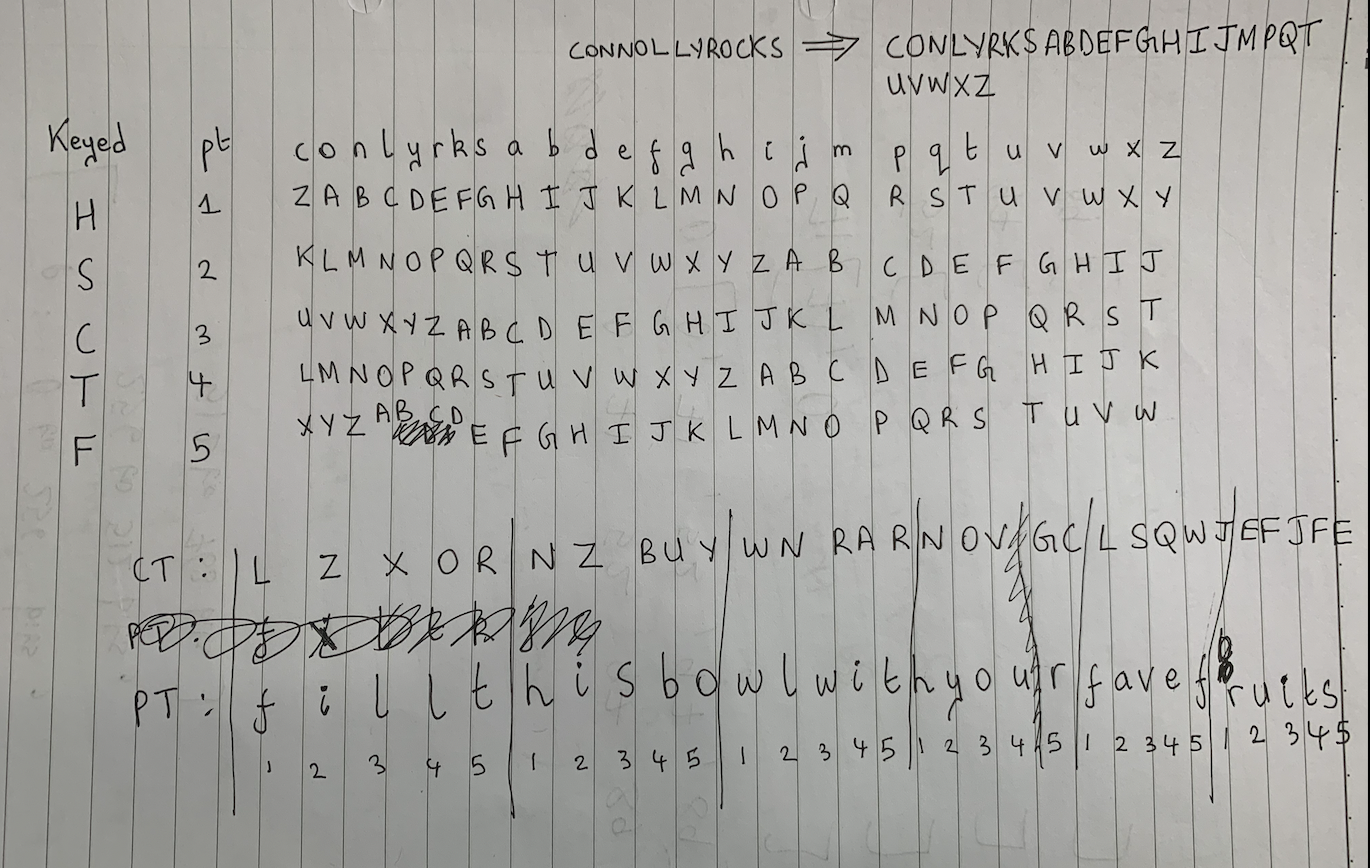 CONNOLLYROCKS ⟹ CONLYRKSABDEFGHIJMPQT
UVWXZ
Keyed pt c o n l y r k s a b d e f g h i j m p q t u v w x z
H 1 Z A B C D E F G H I J K L M N O P Q R S T U V W X Y
S 2 K L M N O P Q R S T U V W X Y Z A B C D E F G H I J
C 3 U V W X Y Z A B C D E F G H I J K L M N O P Q R S T
T 4 L M N O P Q R S T U V W X Y Z A B C D E F G H I J K
F 5 X Y Z A B C D E F G H I J K L M N O P Q R S T U V W
CT : | L Z X O R | N Z B U Y | W N R A R | N O V G C | L S Q W J | E F J F E
PT : | f i l l t | h i s b o | w l w i t | h y o u r | f a v e f | r u i t s
1 2 3 4 5 1 2 3 4 5 1 2 3 4 5 1 2 3 4 5 1 2 3 4 5 1 2 3 4 5